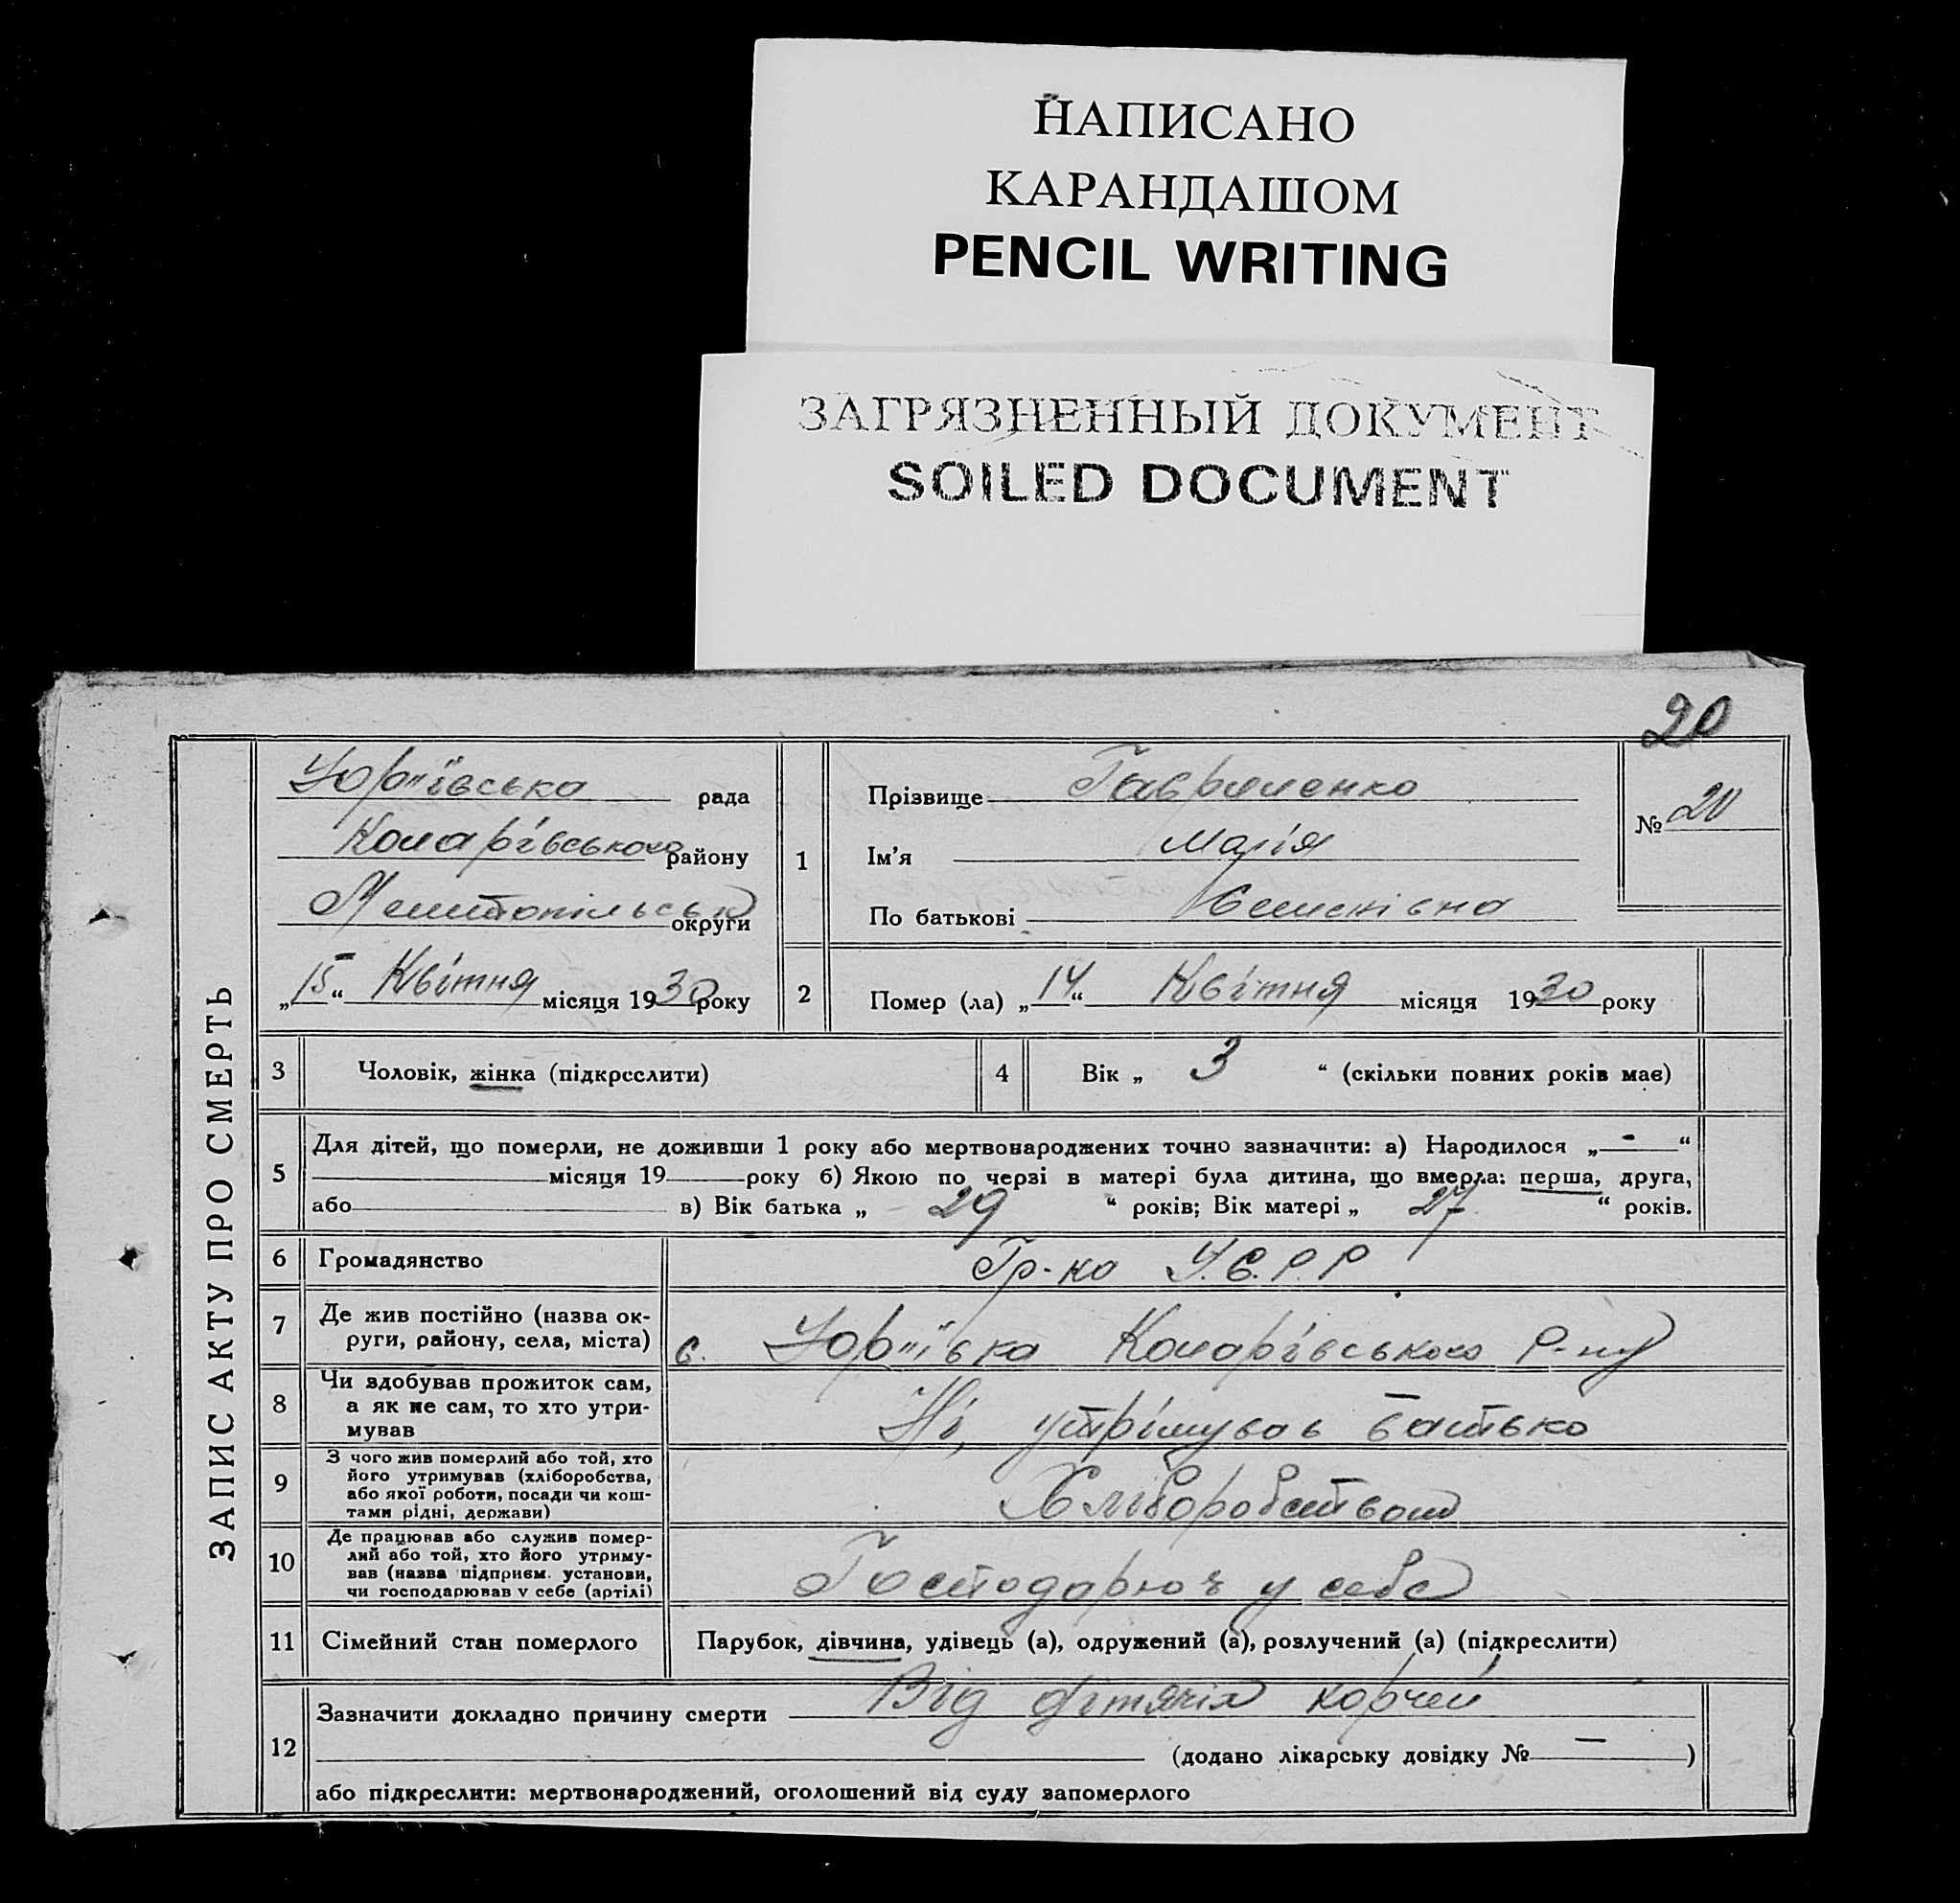 НАПИСАНО
КАРАНДАШОМ
PENCIL WRITING
ЗАГРЯЗНЕННЫЙ ДОКУМЕНТ
SOILED DOCUMENT
20
ЗАПИС АКТУ ПРО СМЕРТЬ
Юр'ївська рада
Комарівського району
округи
„15“ Квітня місяця 1930 року
1
Прізвище Гавриленко
Ім'я Марія
По батькові
№ 20
2
Помер (ла) „14“ Квітня місяця 1930 року
3 Чоловік, жінка (підкреслити)
4 Вік „ 3 “ (скільки повних років має)
5 Для дітей, що померли, не доживши 1 року або мертвонароджених точно зазначити: а) Народилося „ - “
місяця 19 року б) Якою по черзі в матері була дитина, що вмерла: перша, друга,
або в) Вік батька „ 29 “ років; Вік матері „ 27 “ років.
6 Громадянство Гр-ка У.С.Р.Р
7 Де жив постійно (назва ок-
руги, району, села, міста) с. Юр'ївка Комарівського Р-ну
8 Чи здобував прожиток сам,
а як не сам, то хто утри-
мував Ні, утрімував батько
9 З чого жив померлий або той, хто
його утримував (хліборобства,
або якої роботи, посади чи кош-
тами рідні, держави) Хліборобством
10 Де працював або служив помер-
лий або той, хто його утриму-
вав (назва підприєм. установи,
чи господарював у себе (артілі) Господарюч у себе
11 Сімейний стан померлого Парубок, дівчина, удівець (а), одружений (а), розлучений (а) (підкреслити)
12 Зазначити докладно причину смерти Від дітячіх корчей
(додано лікарську довідку № — )
або підкреслити: мертвонароджений, оголошений від суду запомерлого